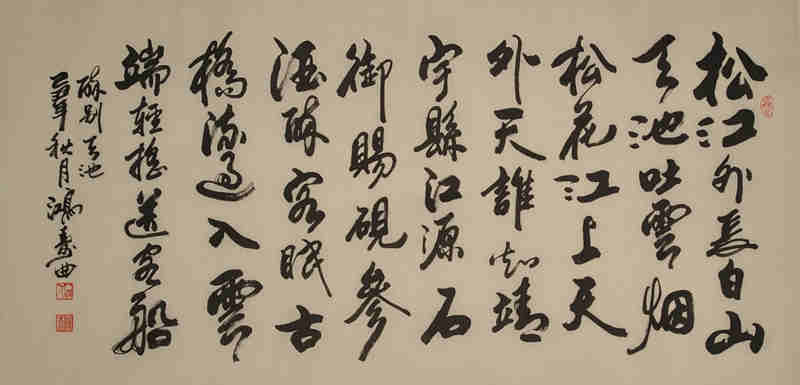 松江外長白山
天池吐雲烟
松花江上天
外天誰知靖
宇縣江源石
御賜硯參
酒醉客眠古
橋流過入雲
端輕搖送客船
醉别天池
年秋月鴻壽曲